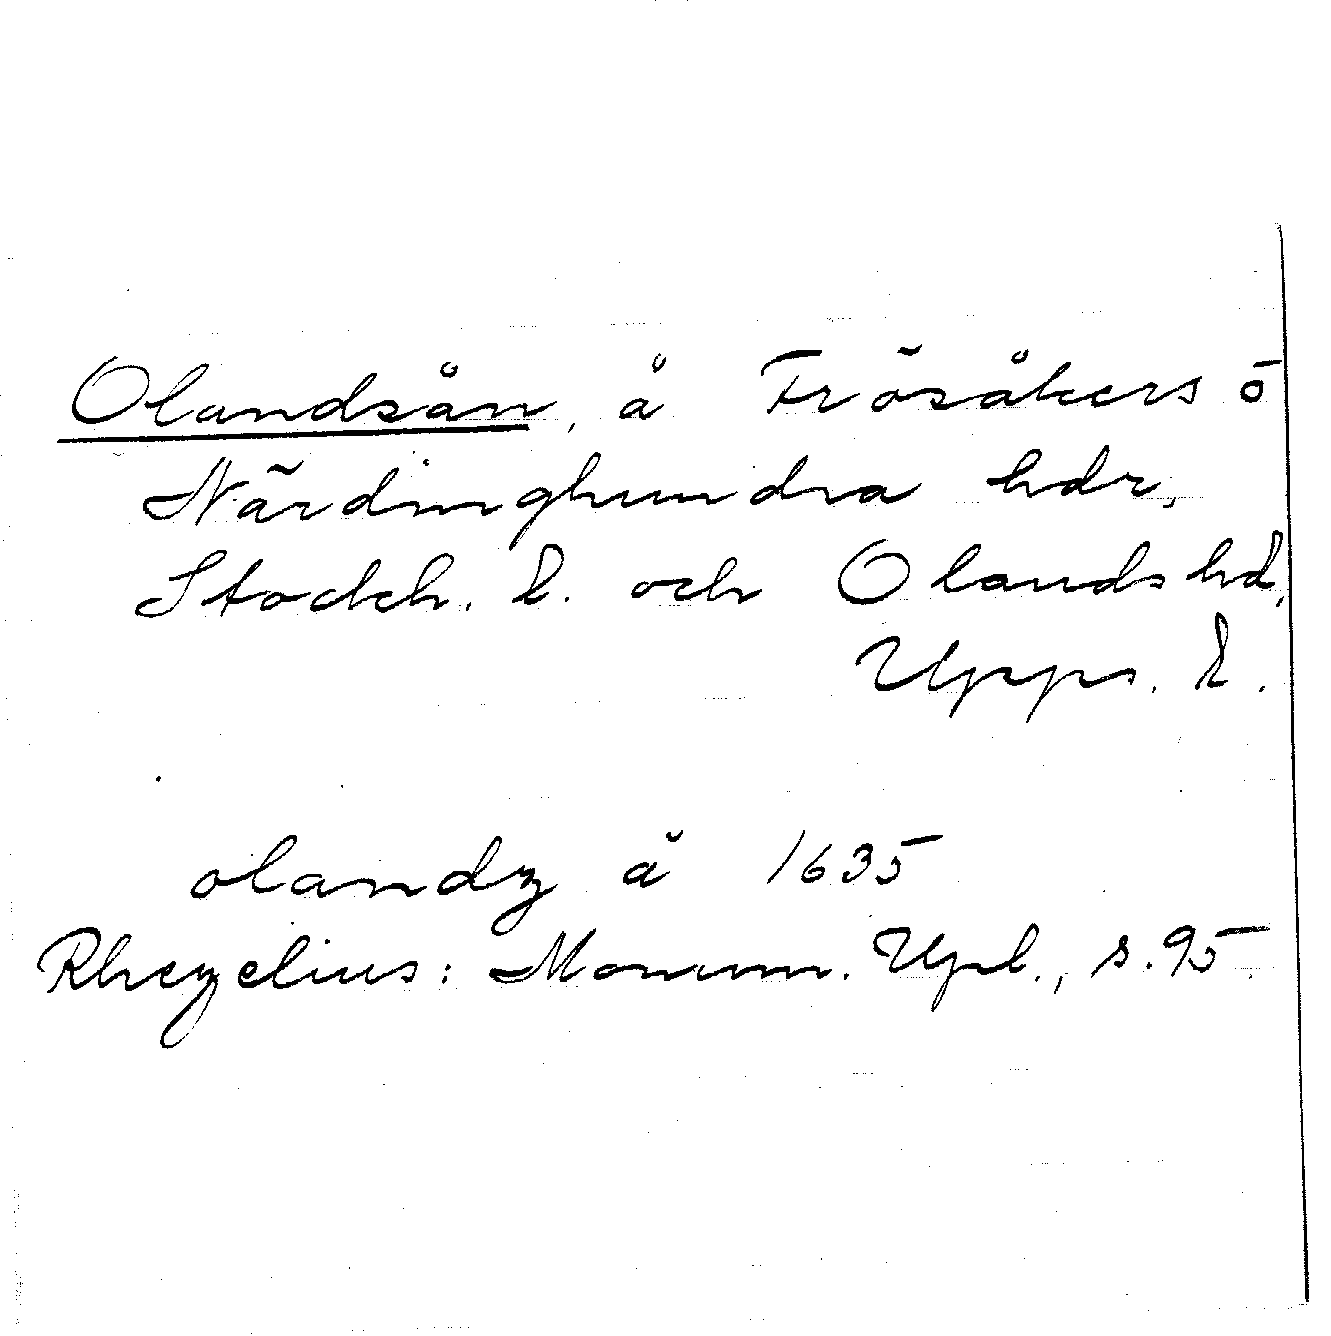 Olandsån, å Frösåkers o
Närdinghundra hdr,
Stockh. l. och Olands hd,
Upps. l.
olandz å 1635
Rhezelius: Monum. Upl., s. 95.